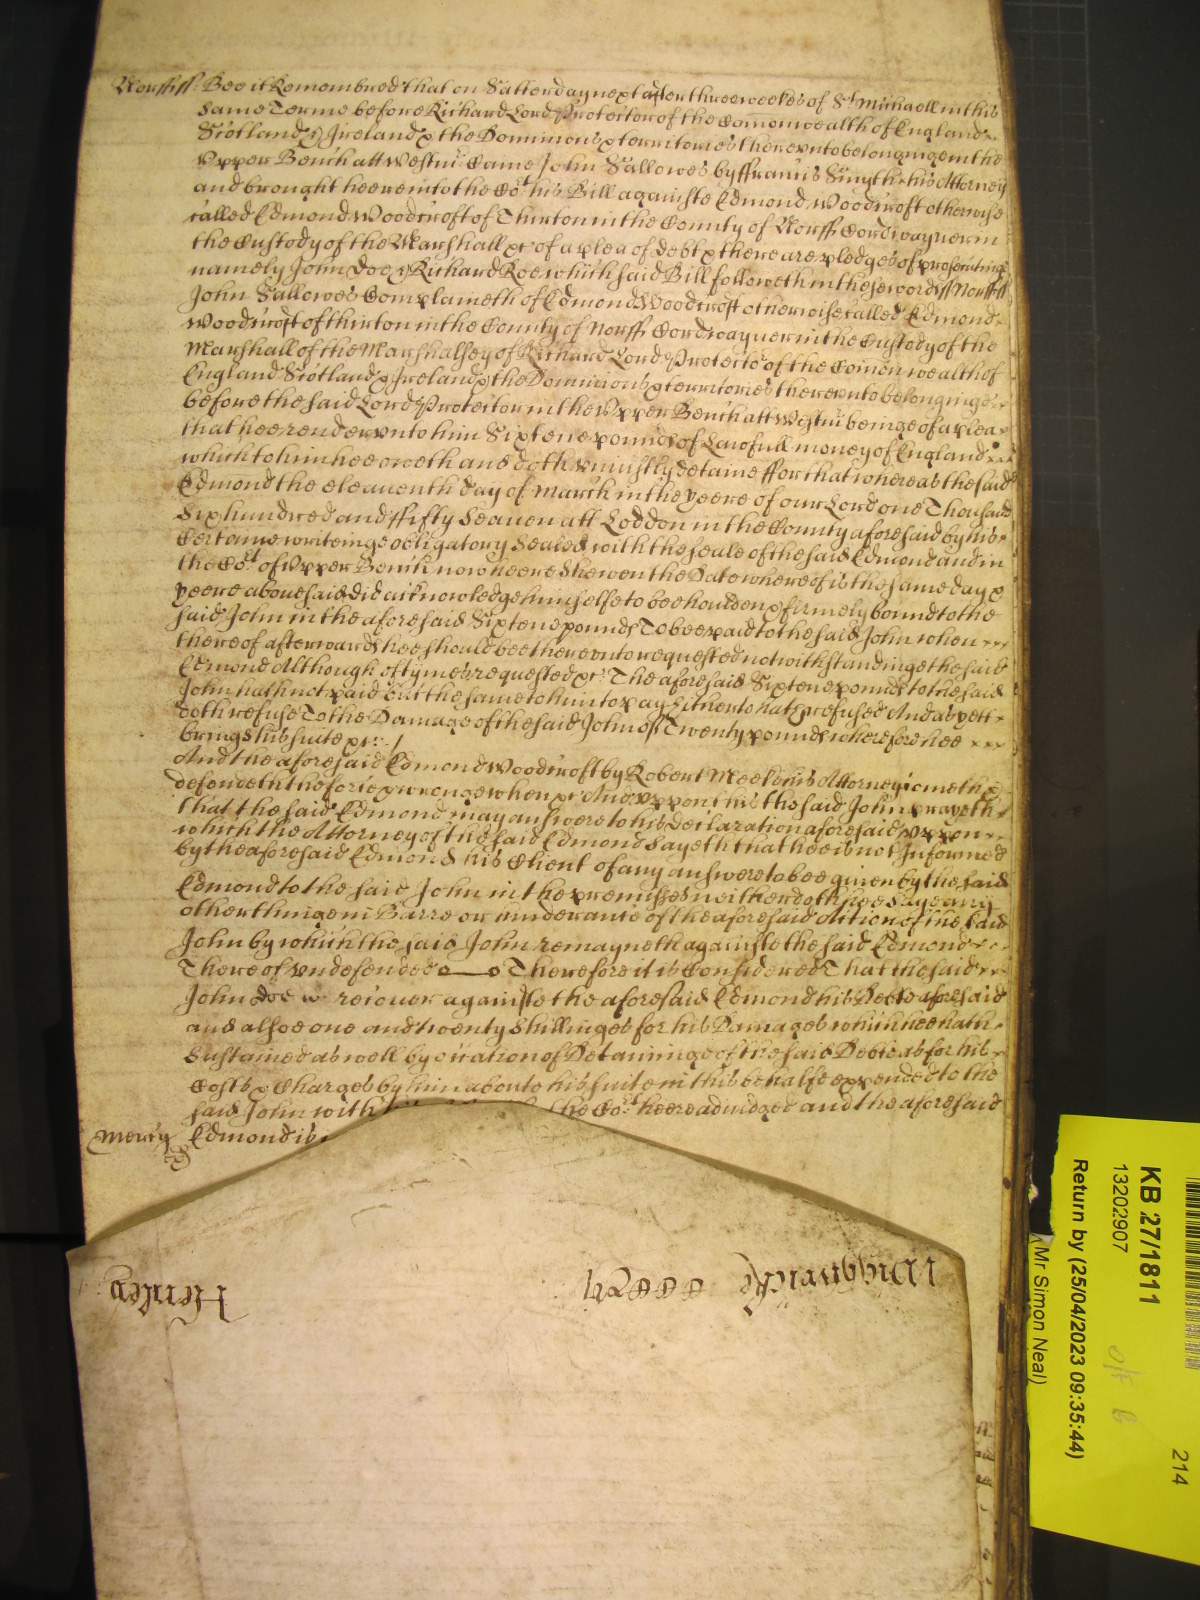 Norff ss. Bee it Remembred that on Satterday next after three weekes of St. Michaell in this
same Terme before Richard Lord Protector of the Comonwealth of England
Scotland & Ireland & the Dominions & territories thereunto belonginge in the
Upper Bench att Westmr. Came John Sallowes by ffrancis Smyth his Attorney
and brought heere into the Cort his Bill againste Edmond Woodcroft otherwise
called Edmond Woodcroft of Thirton in the County of Norff Cordwayner in
the Custody of the Marshall &c of a plea of debt & there are pledges of prosecutinge
namely John Doe & Richard Roe which said Bill followeth in these words ss Norff ss
John Sallowes Complaineth of Edmond Woodcroft otherwise called Edmond
Woodcroft of thirton in the County of Norff Cordwayner in the Custody of the
Marshall of the Marshalsey of Richard Lord Protector of the Comon wealth of
England Scotland & Ireland & the Dominions & territories thereunto belonginge
before the said Lord Protector in the Upper Bench att Westmr. beinge of a plea
that hee render unto him Sixtene pounds of Lawfull money of England
which to him hee oweth and doth uniustly detaine ffor that whereas the said
Edmond the eleaventh day of March in the yeere of our Lord one Thousand
Six hundred and ffifty Seaven att Loddon in the County aforesaid by his
Certaine writeinge obligatory Sealed with the seale of the said Edmond and in
the Cort of Upper Bench now heere shewen the Date whereof is the same day &
yeere abovesaid did acknowledge himselfe to bee houlden & firmely bound to the
said John in the aforesaid Sixtene pounds To bee paid to the said John when
thereof afterwards hee should bee thereunto requested notwithstandinge the said
Edmond Although oftymes requested &c. The aforesaid Sixtene pounds to the said
John hath not paid but the same to him to pay hitherto hath refused And as yett
doth refuse To the Damage of the said John of Twenty pounds wherefore hee
brings his suite &c
And the aforesaid Edmond Woodcroft by Robert Meeke his Attorney cometh &
defendeth the force & wronge when &c And uppon this the said John prayeth
that the said Edmond may answere to his declaration aforesaid uppon
which the Attorney of the said Edmond Sayeth that hee is not Informed
by the aforesaid Edmond his Client of any answere to bee given by the said
Edmond to the said John in the premisses neither doth hee say any
other thinge in Barre or hinderance of the aforesaid Action of the said
John by which the said John remayneth againste the said Edmond
Thereof undefended Therefore it is Considered That the said
John doe recover againste the aforesaid Edmond his Debte aforesaid
and alsoe one and twenty Shillinges for his Damages which hee hath
Sustained as well by occation of Detaininge of the said Debte as for his
Costs & Charges by him aboute his suite in this behalfe expended to the
said John with the Cort heere adiudged and the aforesaid
Mercy Edmond is in
Henley
KB 27/1811
13202907
Return by (25/04/2023 09:35:44)
(Mr Simon Neal)
214